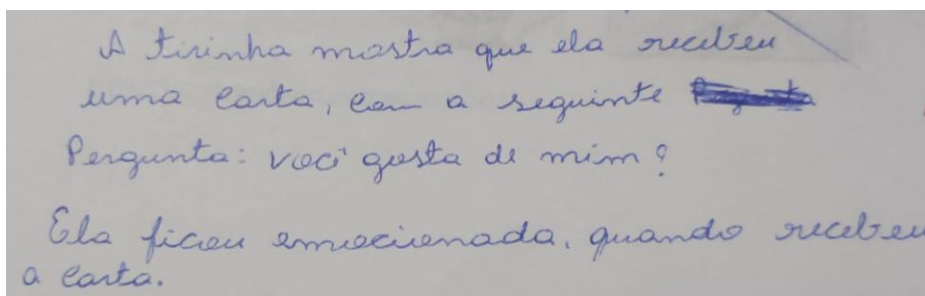 A tirinha mostra que ela recebeu
uma carta, com a seguinte
Pergunta: você gosta de mim?
Ela ficou emocionada, quando recebeu
a carta.